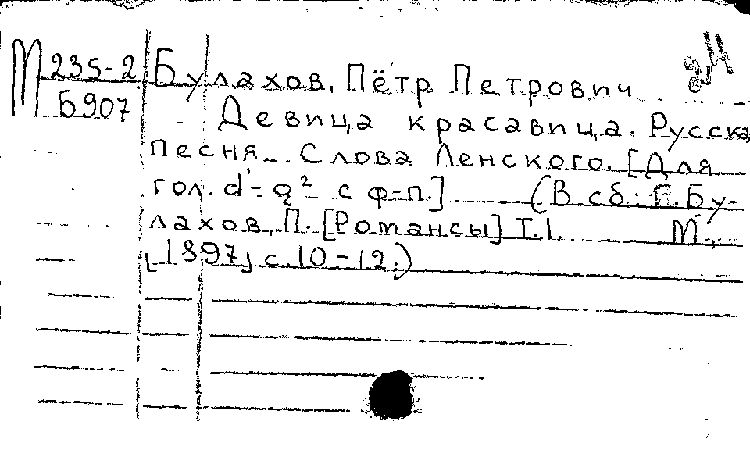 М 235-2 Булахов, Пётр Петрович
Б907 Девица красавица. Русская
песня. Слова Ленского. [Для
гол. d'-g² с ф-п.] (В сб: Бу-
лахов, П. [Романсы] Т.1. М.,
[1897] с.10-12.)